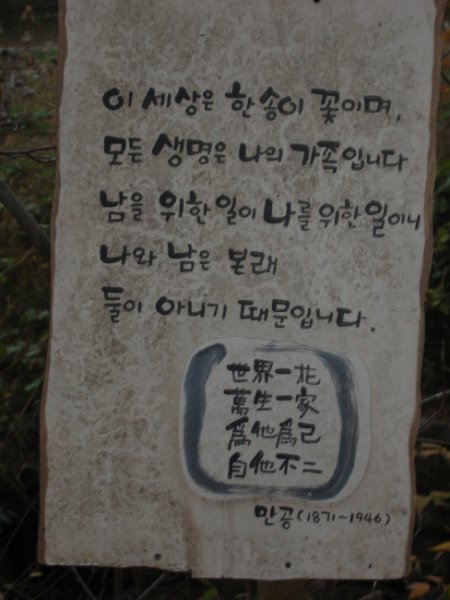 이 세상은 한 송이 꽃이며,
모든 생명은 나의 가족입니다
남을 위한 일이 나를 위한 일이니
나와 남은 본래
둘이 아니기 때문입니다.
世界一花
萬生一家
爲他爲己
自他不二
만공(1871~1946)